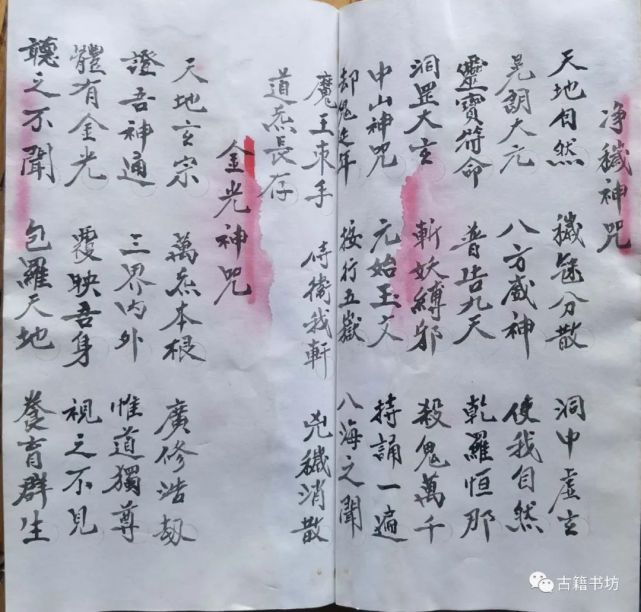 净穢神咒
天地自然 穢炁分散 洞中虛玄
晃朗大元 八方威神 使我自然
靈寶符命 普告九天 乾羅恒那
洞罡大玄 斬妖縛邪 殺鬼萬千
中山神咒 元始玉文 持誦一遍
却鬼延年 按行五嶽 八海之聞
魔王束手 侍衛我軒 兇穢消散
道炁長存
金光神咒
天地玄宗 萬炁本根 廣修浩劫
證吾神通 三界内外 惟道獨尊
體有金光 覆映吾身 視之不見
聽之不聞 包羅天地 養育群生
古籍书坊